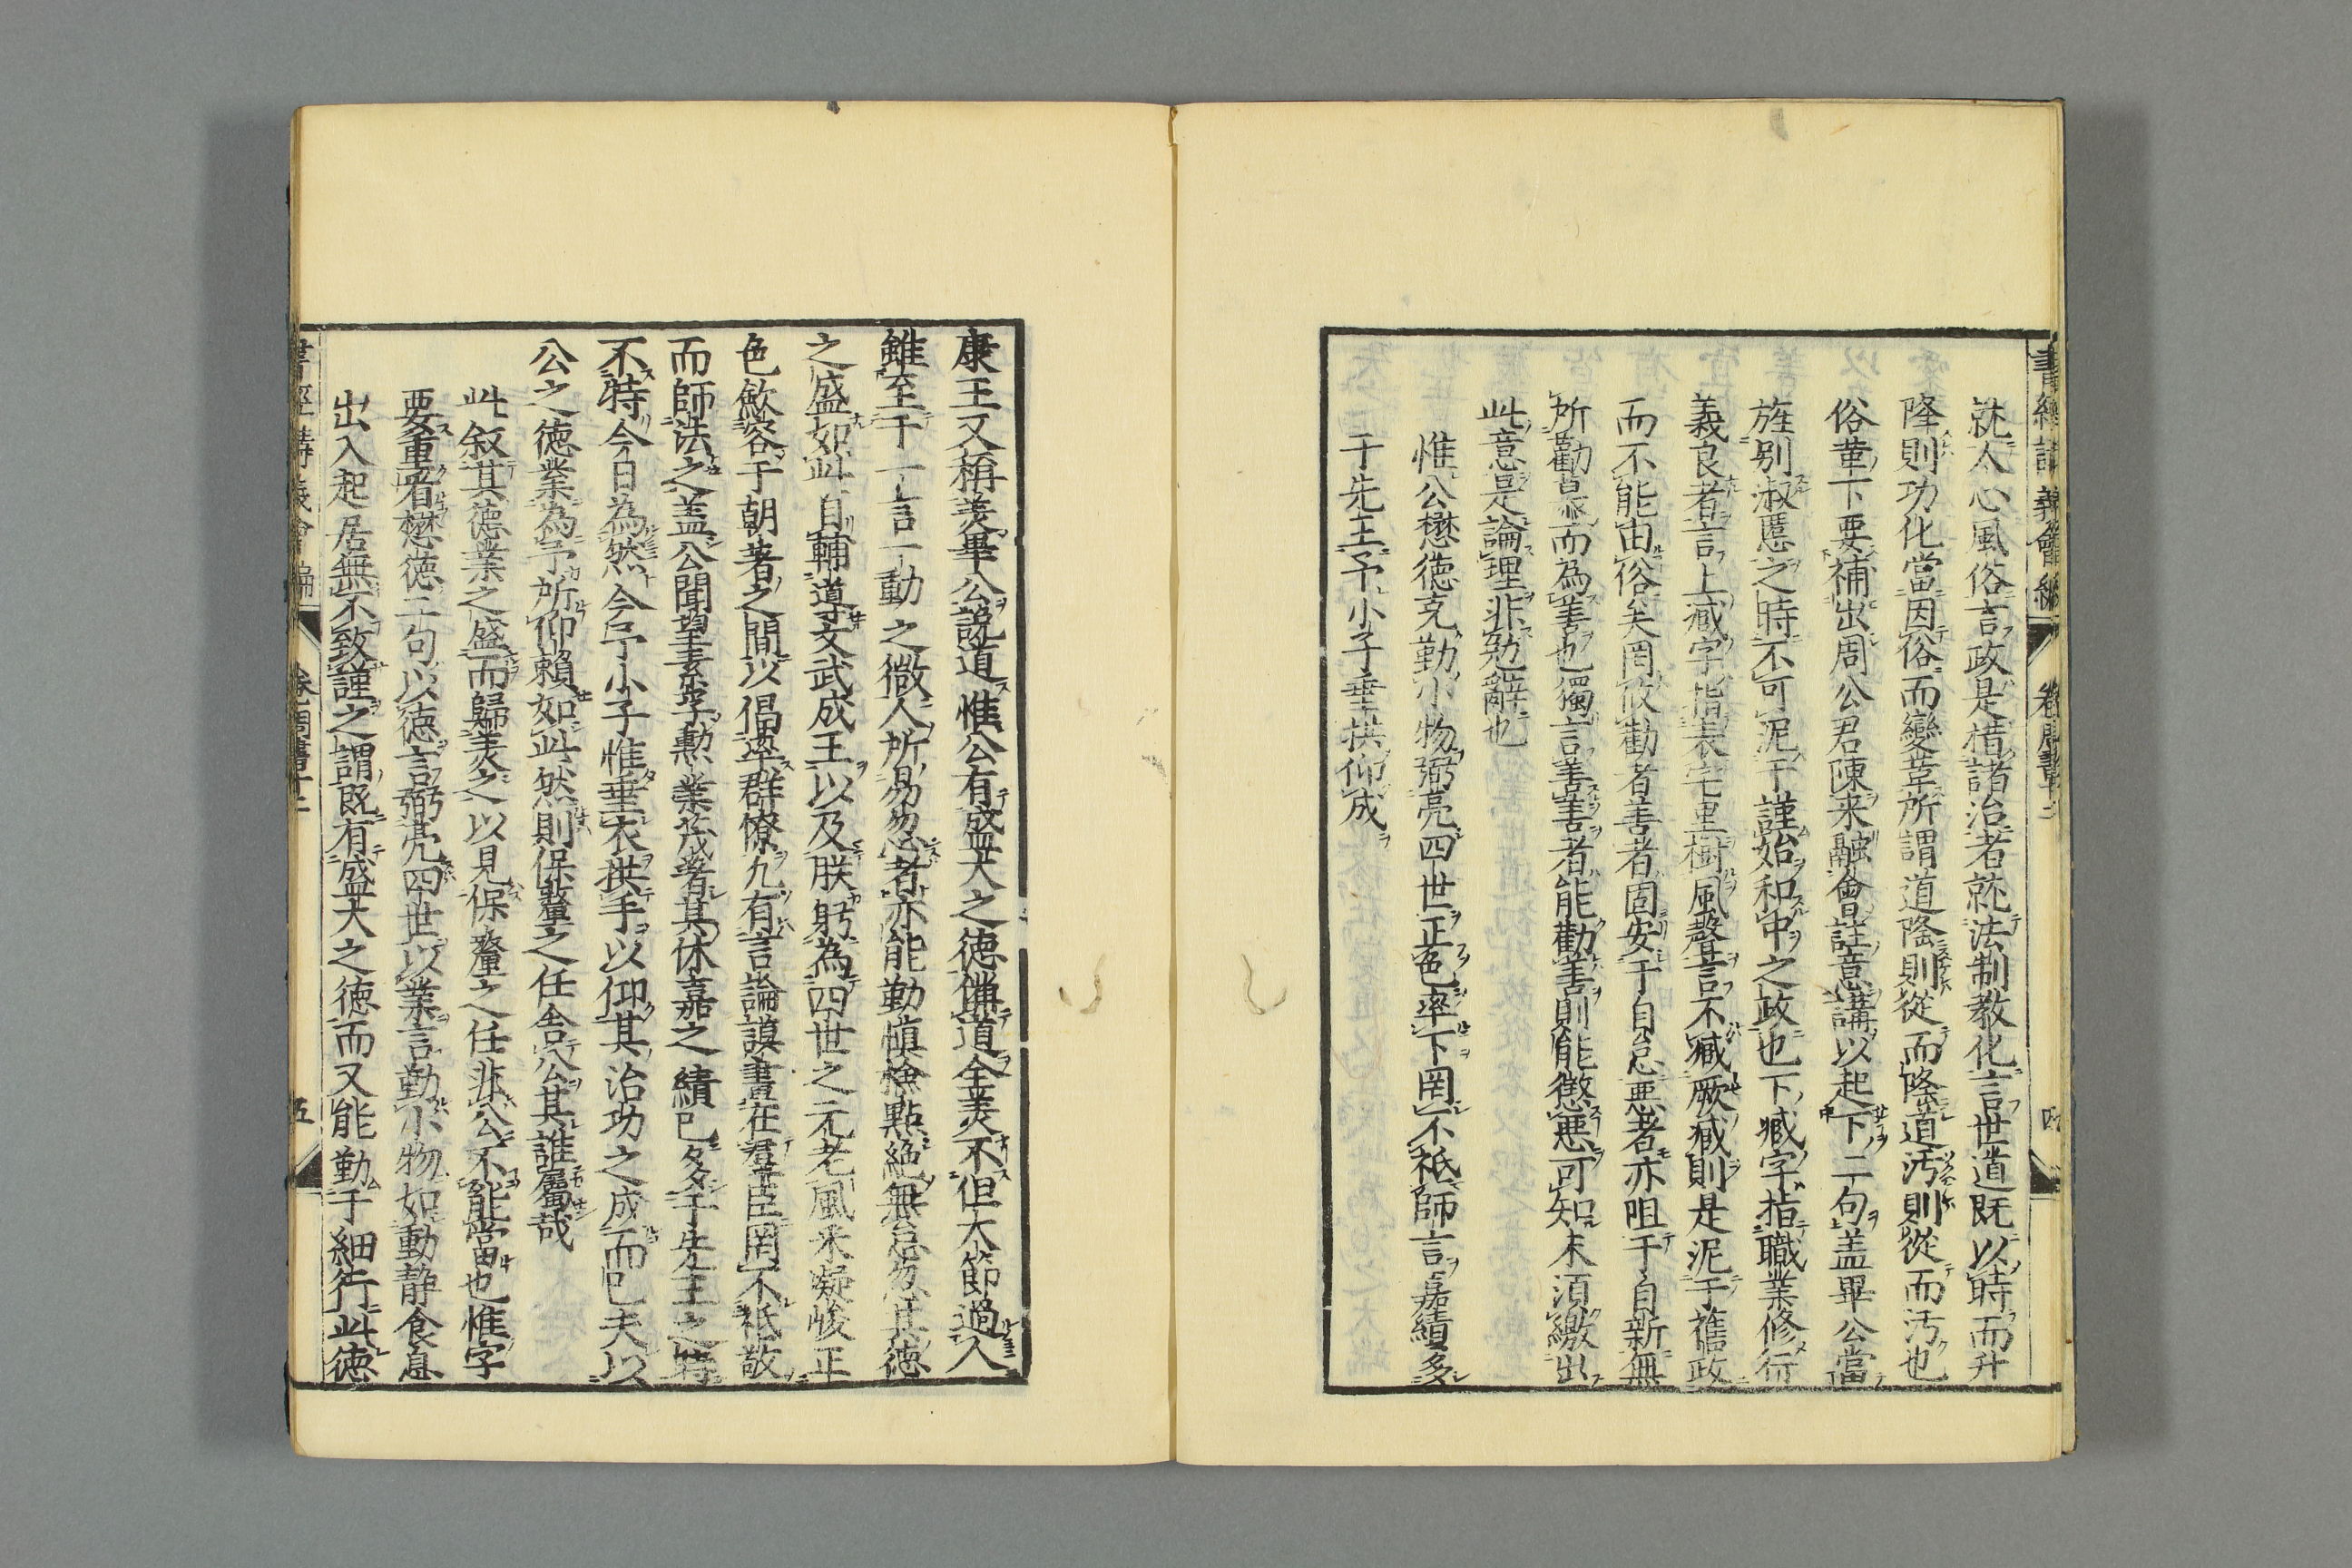 書經講義會編 卷 周書十二 四
就太心風俗言政是措諸治者就法制教化言世道既以時而升
降則功化當因俗而變革所謂道隆則從而隆道汚則從而汚也
俗革下要補出周公君陳来融會註意講以起下二句盖畢公當
旌别淑慝之時不可泥于謹始和中之政也下臧字指職業修行
義良者言上臧字指表宅里樹風聲言不臧厥臧則是泥于舊政
而不能由俗矣罔攸勸者善者固安于自怠悪者亦咀于自新無
所勸慕而為善也獨言善善者能勸善則能懲悪可知末須繳出
此意是論理非勉辭也
惟公懋徳克勤小物弼亮四世正色率下罔不祗師言嘉績多
于先王予小子垂拱仰成
康王又稱美畢公説道惟公有盛大之徳備道全美不但大節過人
雖至于一言一動之微人所易忽者亦能勤慎檢點絶無怠忽其徳
之盛如此自輔導文武成王以及朕躬為四世之元老風采凝峻正
色歛容于朝著之間以倡率群僚凢有言論謨畫在羣臣罔不祗敬
而師法之盖公聞望素孚勲業茂著其休嘉之績已多于先王之時
不特今日為然今予小子惟垂衣拱手以仰其治功之成而已夫以
公之徳業為予所仰賴如此然則保釐之任舎公其誰屬哉
此叙其徳業之盛而歸美之以見保釐之任非公不能當也惟字
要重看懋徳二句以徳言弼亮四世以業言勤小物如動静食息
出入起居無不致謹之謂既有盛大之徳而又能勤于細行此徳
書經講義會編 卷 周書十二 五